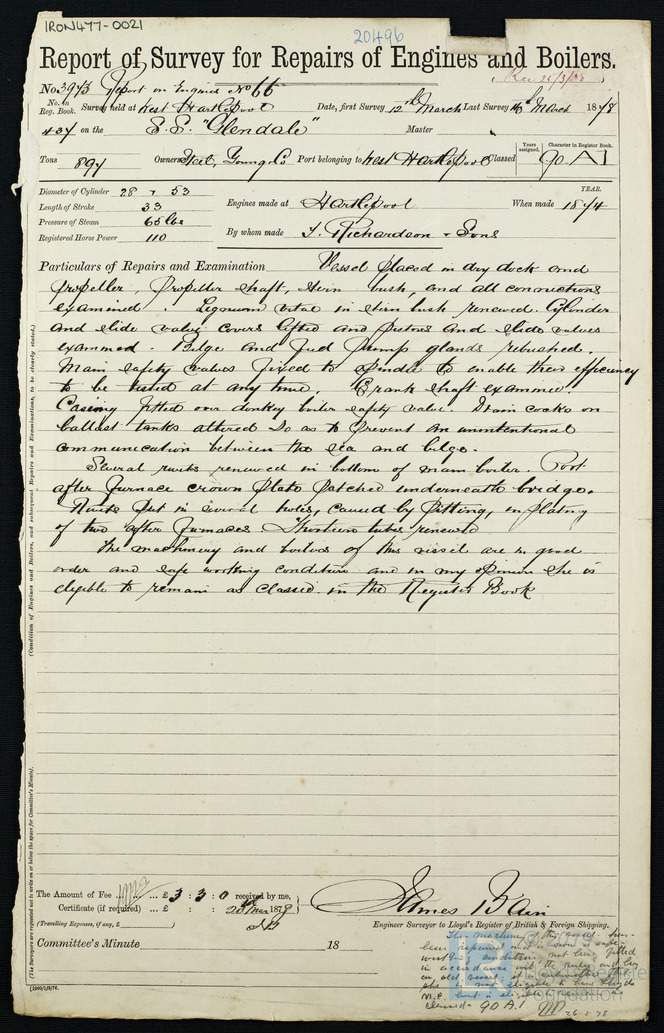 IRON477-0021
20496
Report of Survey for Repairs of Engines and Boilers.
Rec 26/3/78
No. 3973 Report on Engines No 66
No. in Reg. Book. Survey held at West Hartlepool Date, first Survey 12th March Last Survey 16th March 1878
437 on the S.S. "Glendale" Master
Tons 897 Owners Steet, Young & Co Port belonging to West Hartlepool Classed Years assigned. Character in Register Book. 90 A1
Diameter of Cylinder 28 & 53
Length of Stroke 33
Pressure of Steam 65 lbs
Registered Horse Power 110
Engines made at Hartlepool When made YEAR. 1874
By whom made T. Richardson & Sons
Particulars of Repairs and Examination Vessel placed in dry dock and
propeller, propeller shaft, stern bush, and all connections
examined. Lignum vitae in stern bush renewed. Cylinder
and slide valve covers lifted and pistons and slide valves
examined. Bilge and feed pump glands rebushed.
Main safety valves fixed to spindle to enable their efficiency
to be tested at any time. Crank shaft examined.
Casing fitted over donkey boiler safety valve. Drain cocks on
ballast tanks altered so as to prevent an unintentional
communication between the sea and bilge.
Several rivets renewed in bottom of main boiler. Port
after furnace crown plate patched underneath bridge.
Rivets put in several holes, caused by pitting, in plating
of two after furnaces Thirteen tubes renewed
The machinery and boilers of this vessel are in good
order and safe working condition and in my opinion she is
eligible to remain as classed in the Register Book
(Condition of Engines and Boilers, and subsequent Repairs and Examinations, to be clearly stated.)
(The Surveyors are requested not to write on or below the space for Committee's Minute).
The Amount of Fee ... £ 3 : 3 : 0 received by me,
Certificate (if required) ... £ : : 20th Mar 1878
(Travelling Expenses, if any, £ )
James Bain
Engineer Surveyor to Lloyd's Register of British & Foreign Shipping.
Committee's Minute 18
The machinery of this vessel
been repaired and is now in safe
working condition, not being fitted
in accordance with the rules
an old vessel, it is submitted that
she is not eligible to have Lloyds
M.C. but is eligible to remain as
classed 90 A.1
26.3.78
Foundation